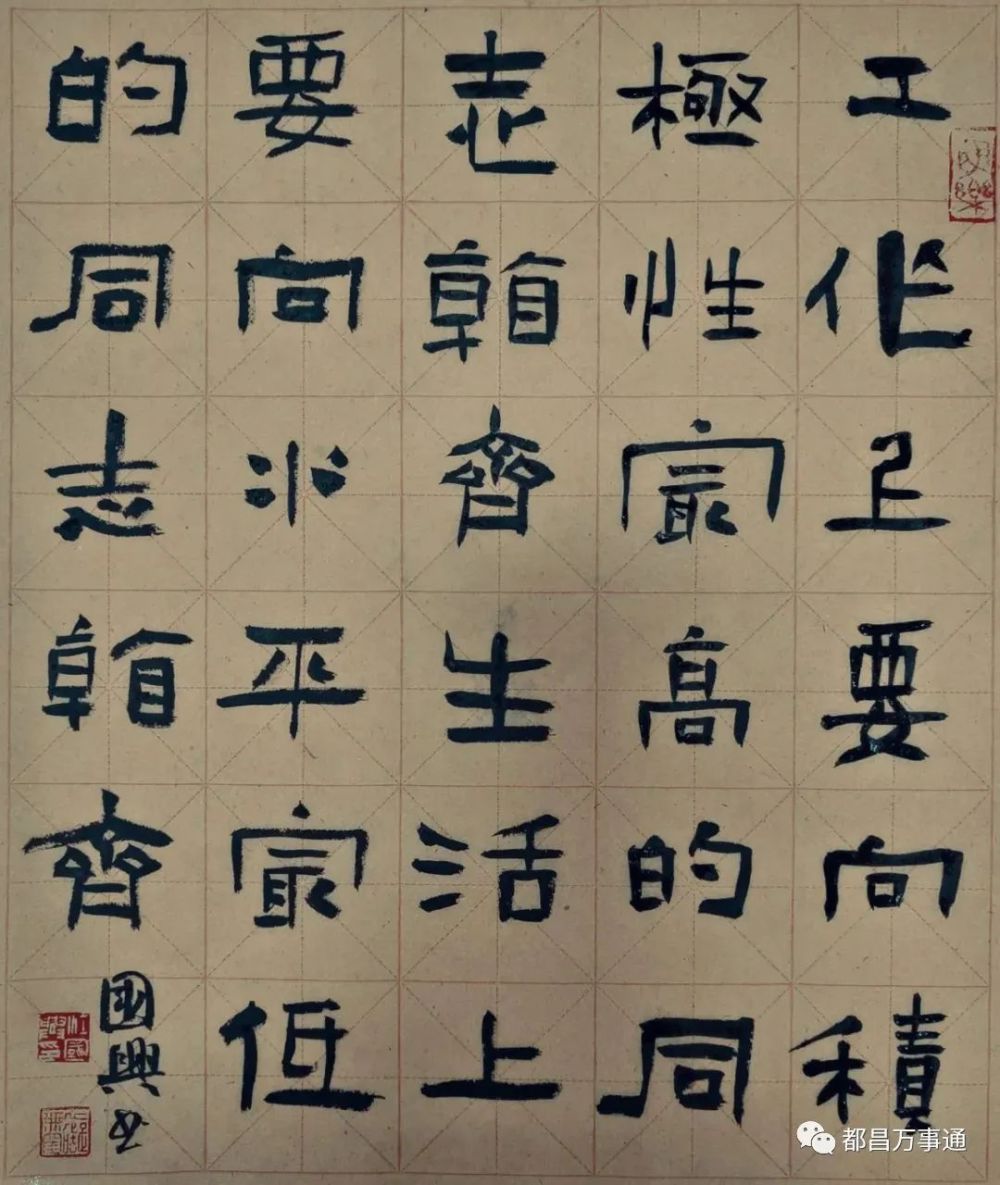 工作上要向積
極性冣高的同
志看齊生活上
要向水平冣低
的同志看齊
國興书
都昌万事通